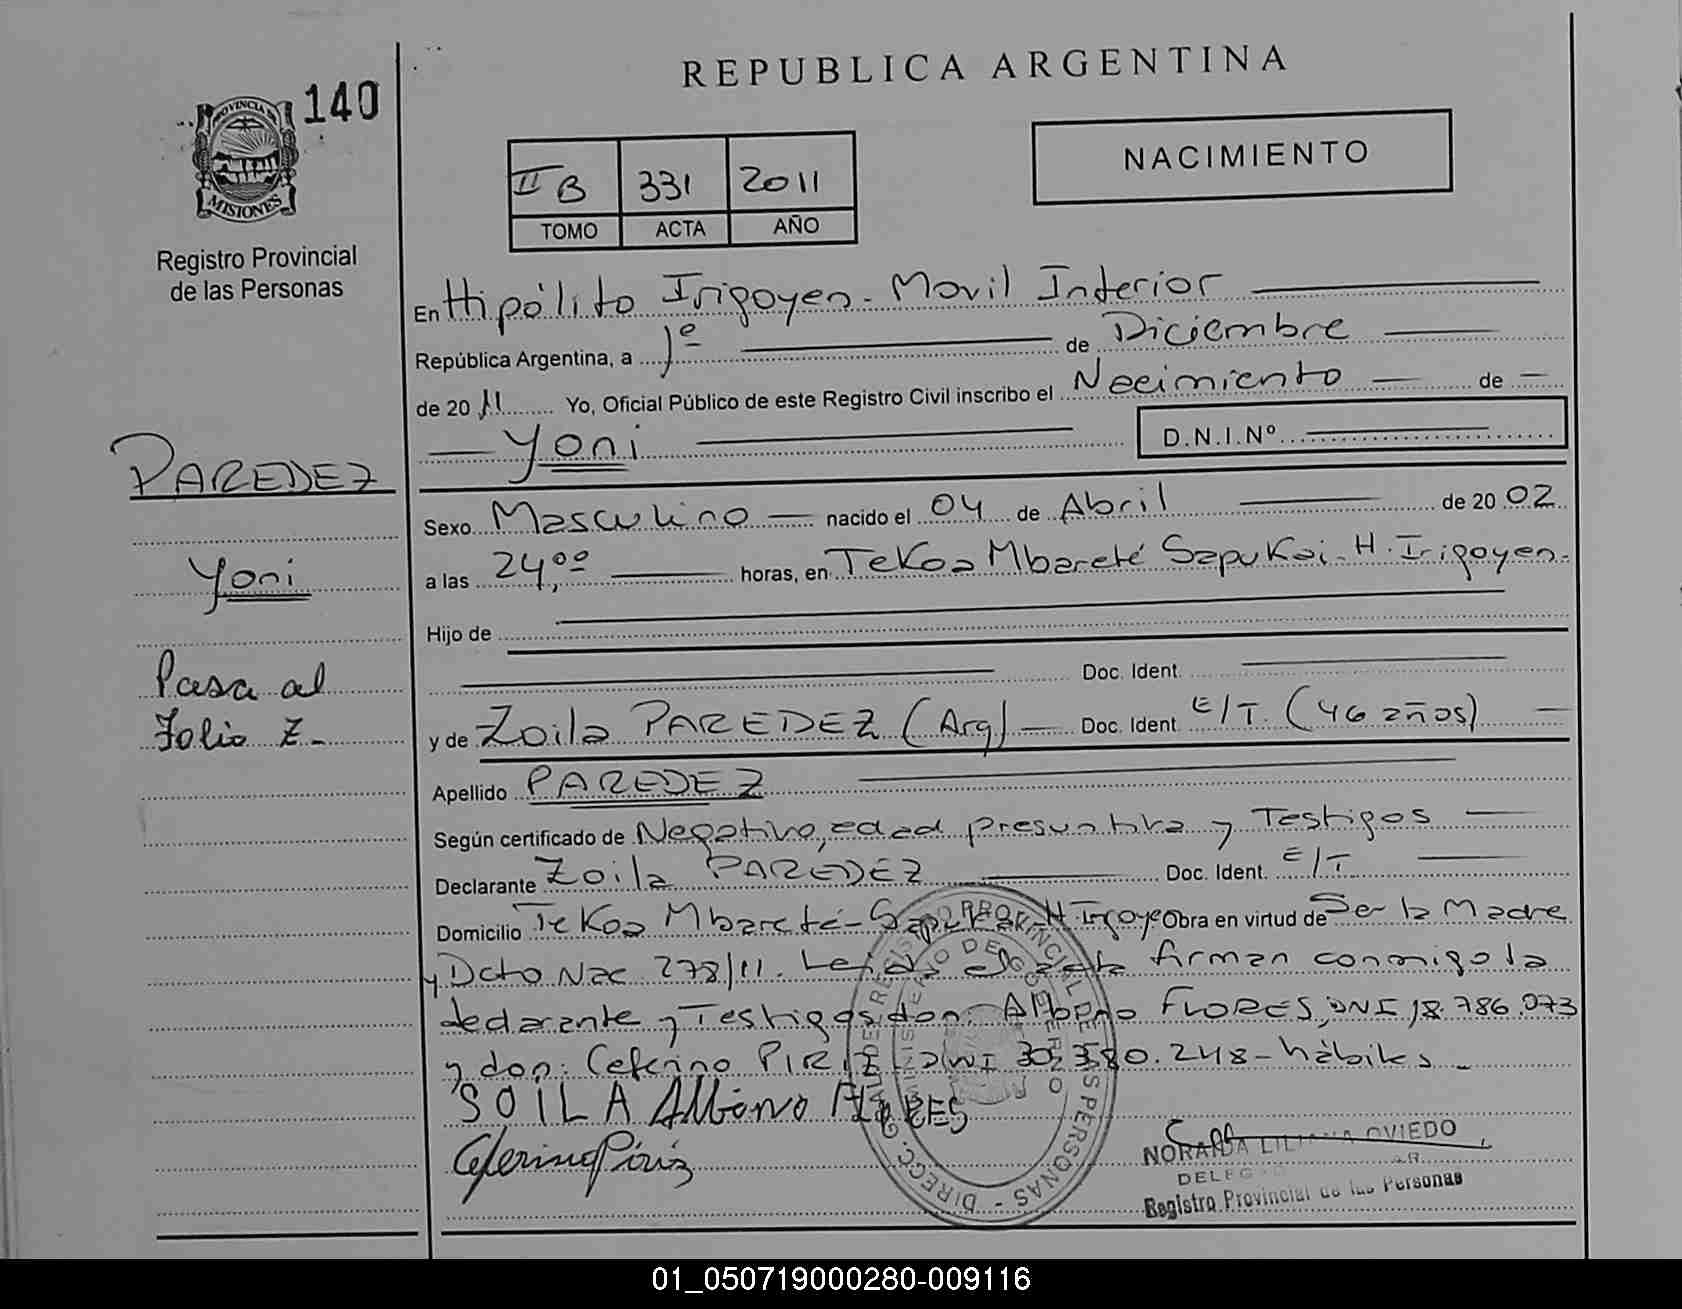 REPUBLICA ARGENTINA
PROVINCIA DE
MISIONES
140
Registro Provincial
de las Personas
II B 331 2011
TOMO ACTA AÑO
NACIMIENTO
En Hipólito Irigoyen - Movil Interior
República Argentina, a 1º de Diciembre
de 20 11 Yo, Oficial Público de este Registro Civil inscribo el Nacimiento de
Yoni D.N.I.Nº
PAREDEZ
Sexo Masculino nacido el 04 de Abril de 20 02
Yoni
a las 24,00 horas, en TeKoa Mbareté SapuKai - H. Irigoyen.
Hijo de
Pasa al
Folio Z.
Doc. Ident.
y de Zoila PAREDEZ (Arg) Doc. Ident. E/T. (46 años)
Apellido PAREDEZ
Según certificado de Negativo, edad presuntiva y Testigos
Declarante Zoila PAREDEZ Doc. Ident. E/T
Domicilio TeKoa Mbareté - H Irigoye Obra en virtud de Ser la Madre
y Dcto Nac 278/11. Leida el acta firman conmigo la
declarante y Testigos don: Albino FLORES, DNI 18.786.073
y don: Ceferino PIRIZ DNI 30.380.248 - hábiles
SOILA Albino FLORES
Ceferino Píriz
NORAIDA LILIANA OVIEDO
DELEG
Registro Provincial de las Personas
DIRECC. GRAL DE REGISTRO PROVINCIAL DE LAS PERSONAS
MINISTERIO DE GOBIERNO
01_050719000280-009116